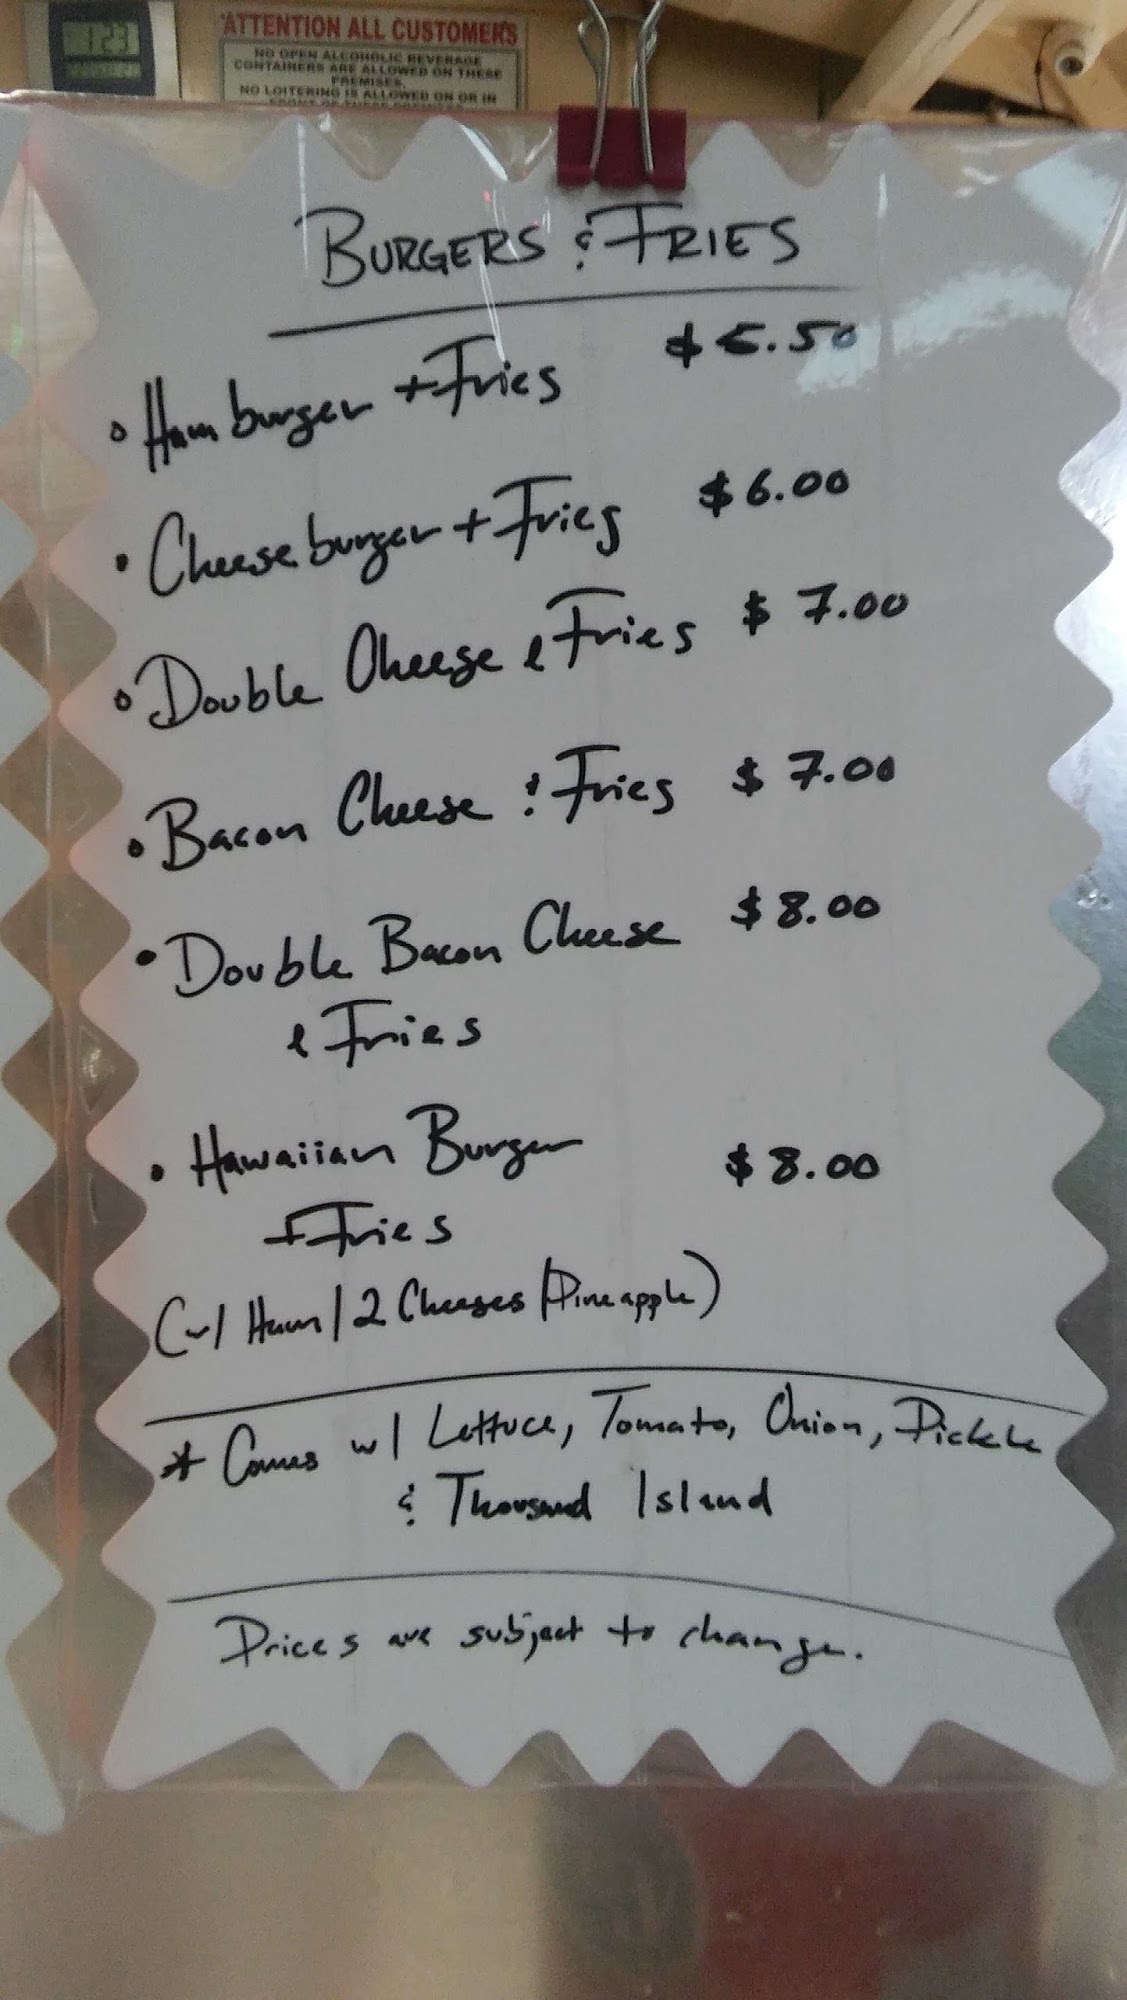 123
ATTENTION ALL CUSTOMERS
NO OPEN ALCOHOLIC BEVERAGE
CONTAINERS ARE ALLOWED ON THESE
PREMISES.
NO LOITERING IS ALLOWED ON OR IN
FRONT OF THESE PREMISES
BURGERS & FRIES
Hamburger + Fries $5.50
Cheeseburger + Fries $6.00
Double Cheese & Fries $7.00
Bacon Cheese & Fries $7.00
Double Bacon Cheese $8.00
& Fries
Hawaiian Burger $8.00
+ Fries
(w/ Ham/2 Cheeses/Pineapple)
* Comes w/ Lettuce, Tomato, Onion, Pickle
& Thousand Island
Prices are subject to change.